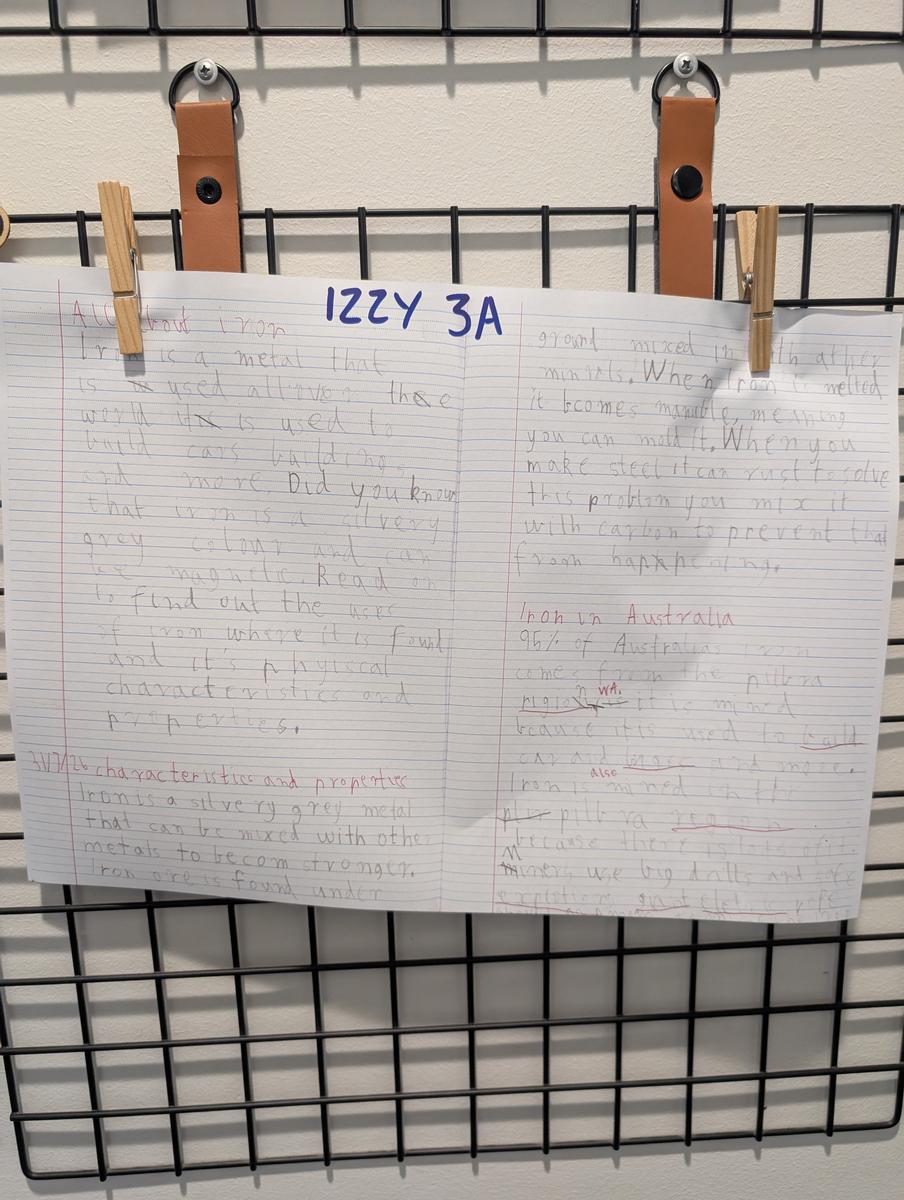 IZZY 3A
All about iron
Iron is a metal that
is used all over the
world it is used to
build cars buildings
and more. Did you know
that iron is a silvery
grey colour and can
be magnetic. Read on
to find out the uses
of iron where it is found
and it's phyiscal
characteristics and
properties.
31/7/26 characteristics and properties
Iron is a silvery grey metal
that can be mixed with other
metals to becom stronger.
Iron ore is found under
ground mixed in with ather
minrols. When iron is melted
it bcomes manuble, meaning
you can mold it. When you
make steel it can rust to solve
this problem you mix it
with carbon to prevent that
from happening.
Iron in Australia
95% of Australias iron
comes from the pilbra
rigion WA. it is mined
bcause it is used to build
car and more.
Iron is also mined in the
pilbra region
because there is lots of it.
Miners use big drills and